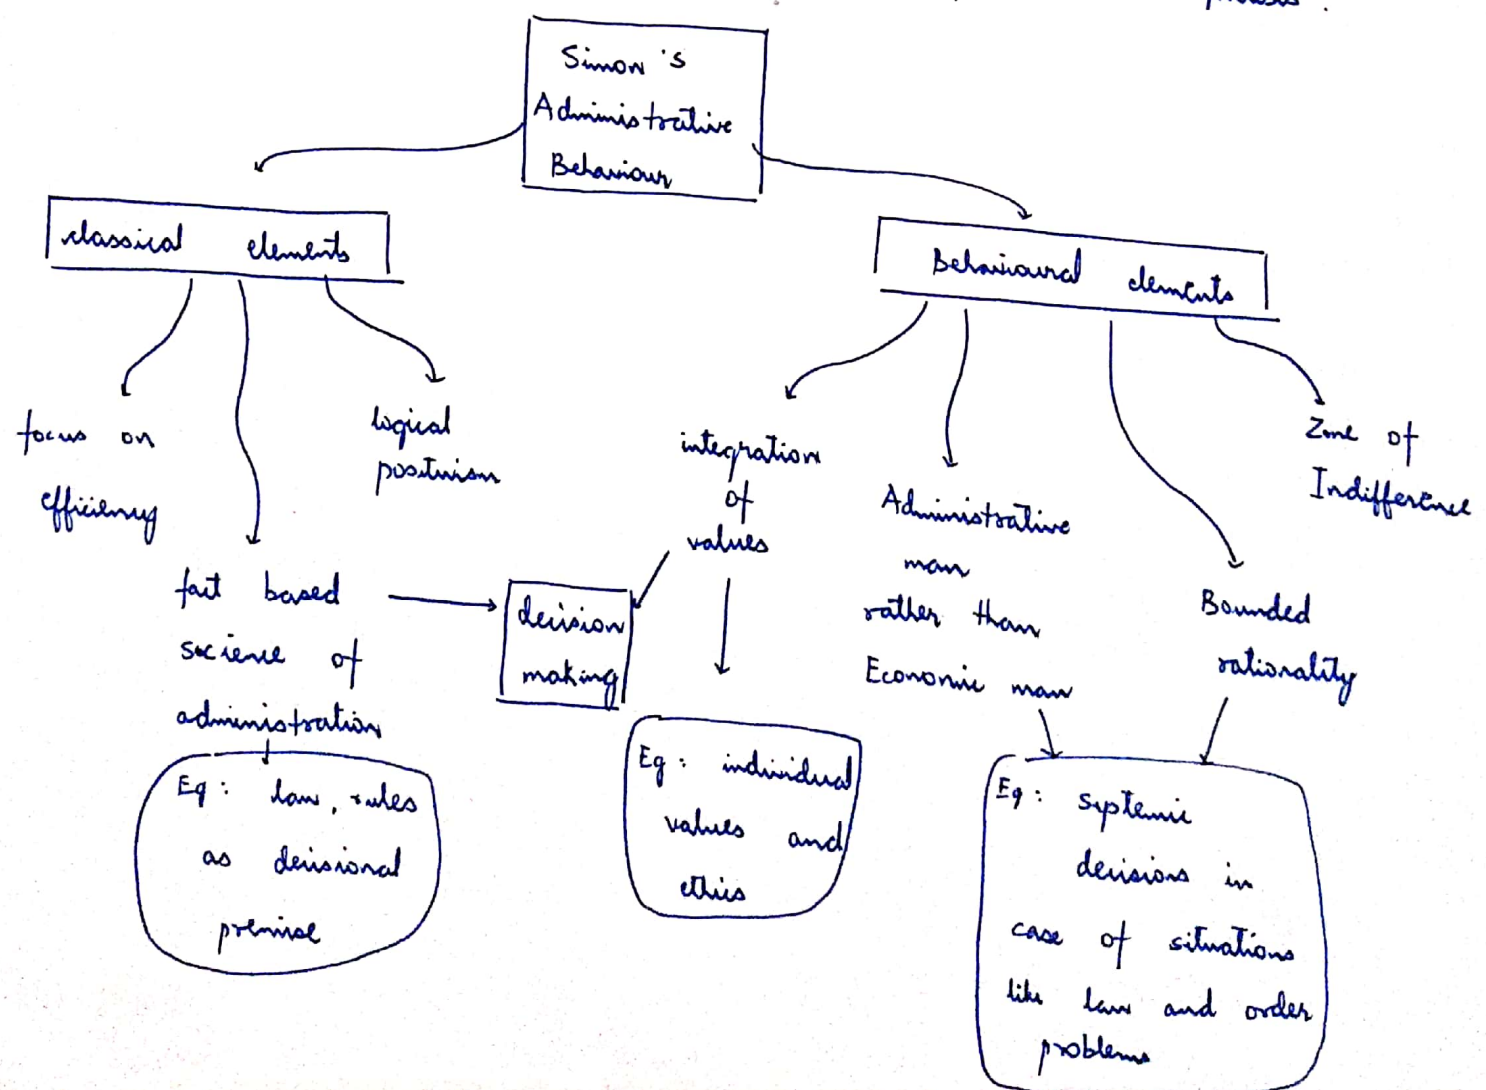 Simon's
Administrative
Behaviour
classical elements
Behavioural elements
focus on
efficiency
logical
positivism
fact based
science of
administration
Eg: law, rules
as decisional
premise
decision
making
integration
of
values
Eg: individual
values and
ethics
Administrative
man
rather than
Economic man
Bounded
rationality
Zone of
Indifference
Eg: systemic
decisions in
case of situations
like law and order
problems